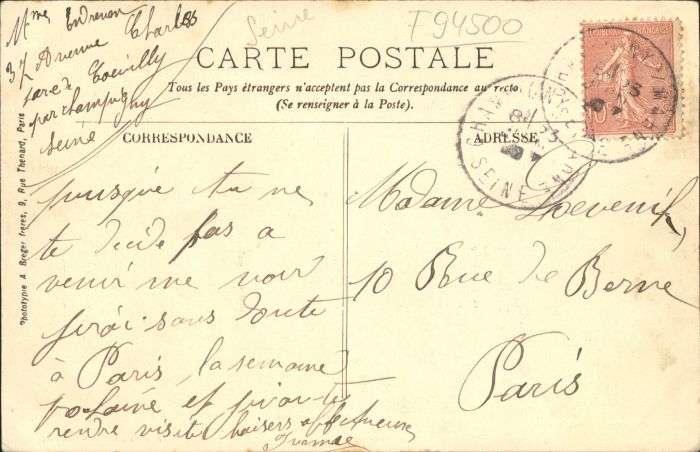 Mme
37 Avenue Charles
parc de Coeuilly
par champigny
seine
Seine
F94500
CARTE POSTALE
Tous les Pays étrangers n'acceptent pas la Correspondance au recto.
(Se renseigner à la Poste).
CORRESPONDANCE
ADRESSE
CHAMPIGNY
SEINE
Phototypie A. Breger frères, 9, Rue Thenard, Paris
puisque tu ne
te décide pas a
venir me voir
j'irai sans doute
à Paris, la semaine
prochaine et j'irai te
rendre visite baisers affectueux
Madame
10 Rue de Berne
Paris